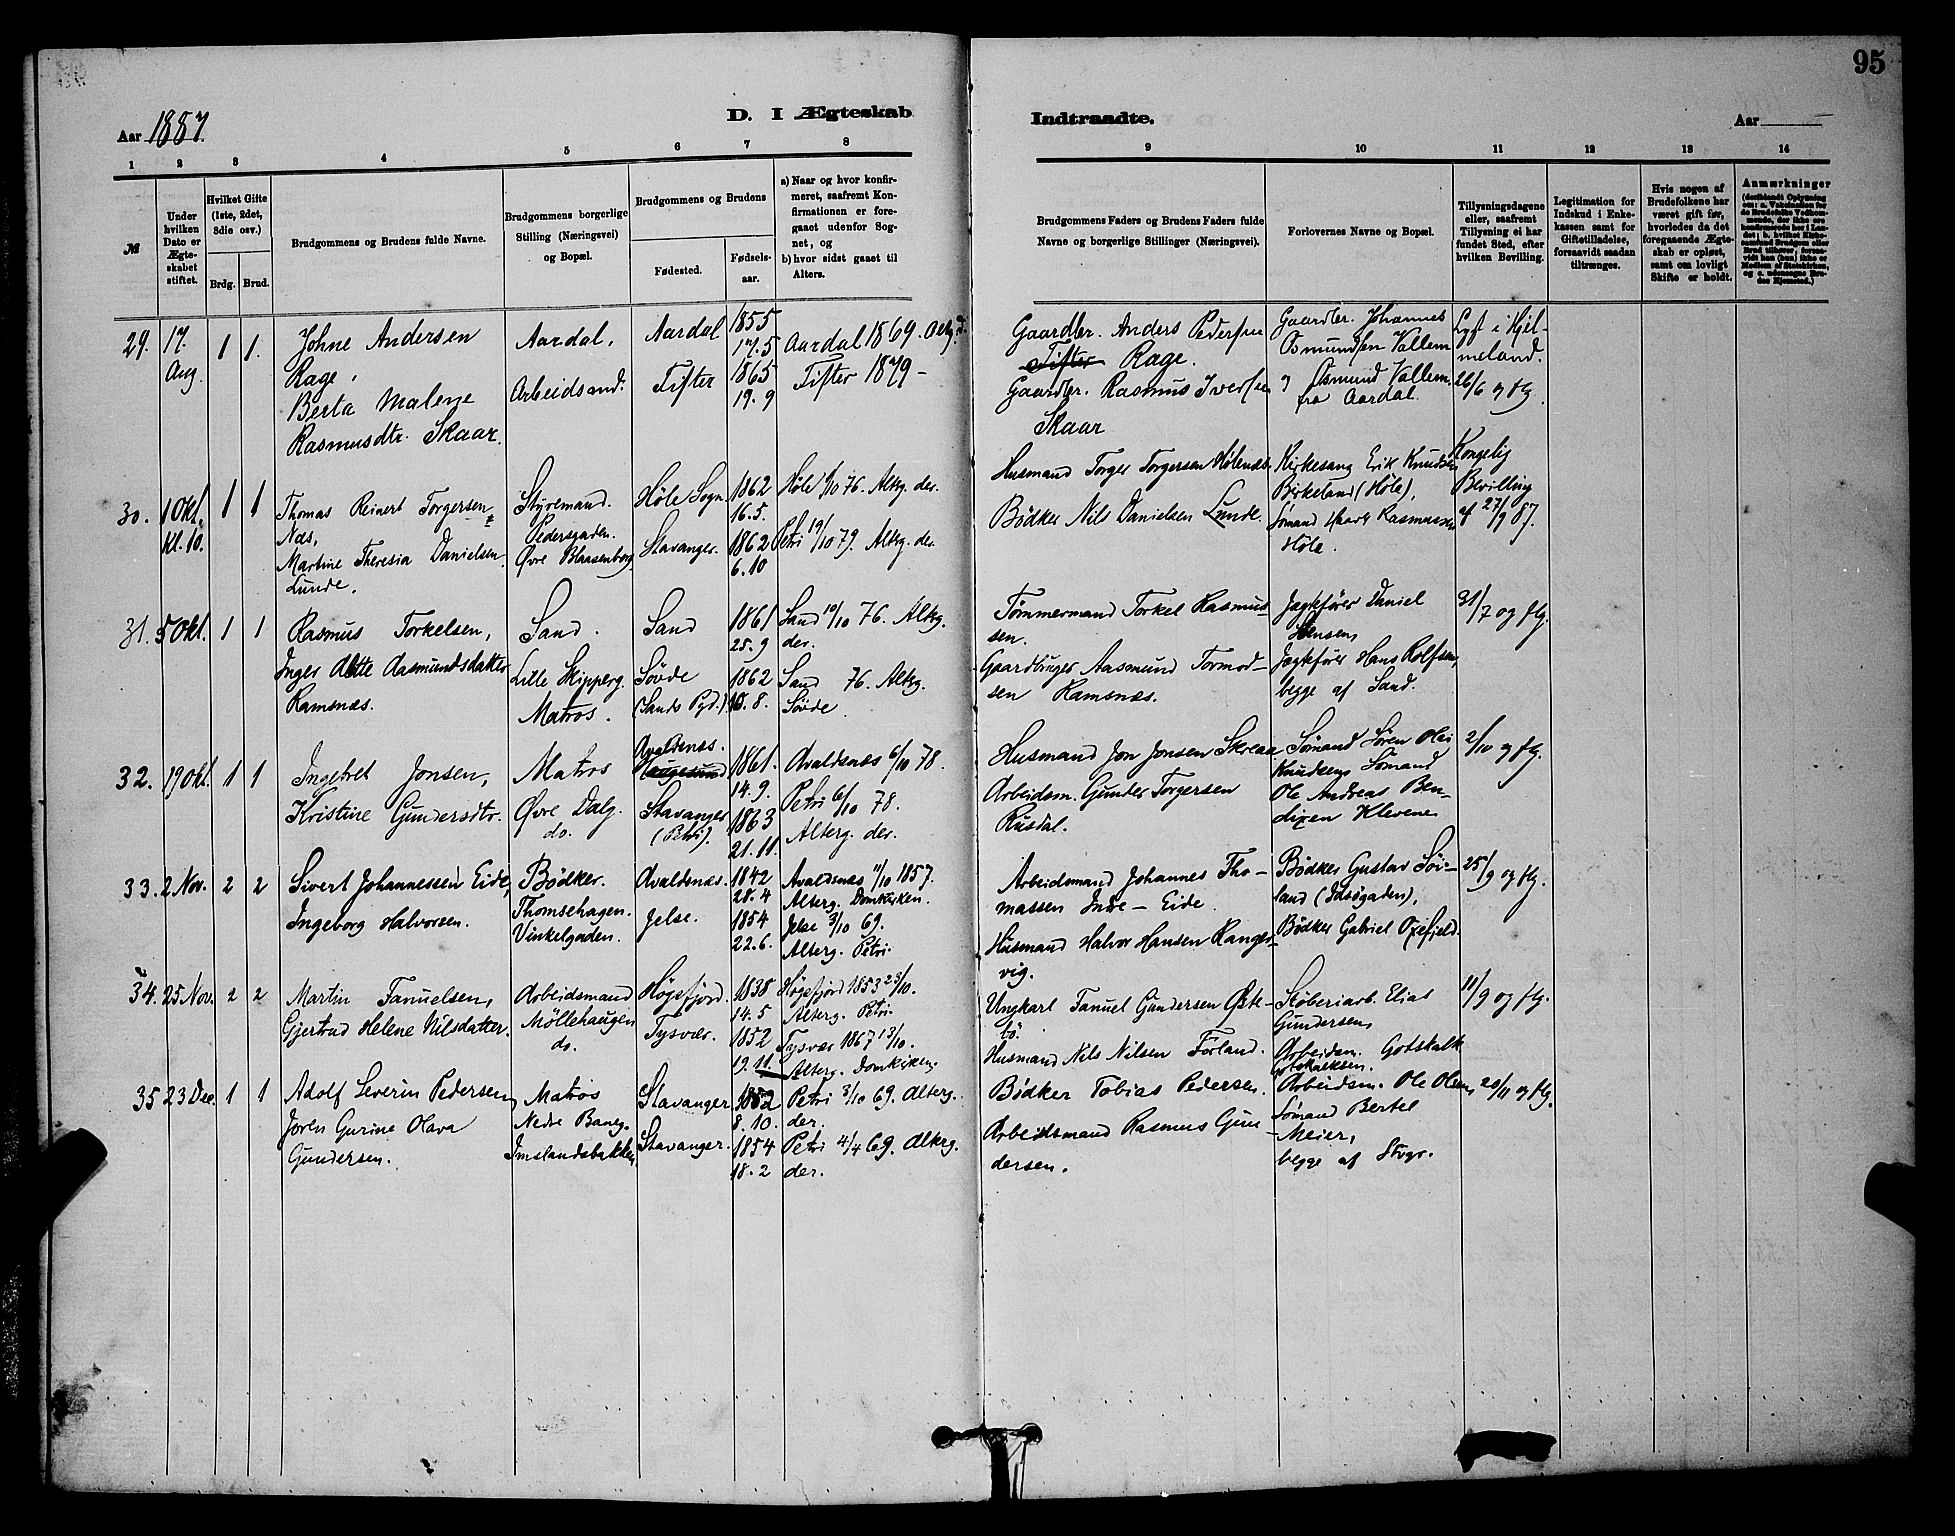 95
Aar 1887.
D. I Ægteskab
Indtraadte.
Aar
1
2
3
4
5
6
7
8
9
10
11
12
13
14
№
Under
hvilken
Dato er
Ægte-
skabet
stiftet.
Hvilket Gifte
(1ste, 2det,
3die osv.)
Brdg.
Brud.
Brudgommens og Brudens fulde Navne.
Brudgommens borgerlige
Stilling (Næringsvei)
og Bopæl.
Brudgommens og Brudens
Fødested.
Fødsels-
aar.
a) Naar og hvor konfir-
meret, saafremt Kon-
firmationen er fore-
gaaet udenfor Sog-
net, og
b) hvor sidst gaaet til
Alters.
Brudgommens Faders og Brudens Faders fulde
Navne og borgerlige Stillinger (Næringsvei).
Forlovernes Navne og Bopæl.
Tillysningsdagene
eller, saafremt
Tillysning ei har
fundet Sted, efter
hvilken Bevilling.
Legitimation for
Indskud i Enke-
kassen samt for
Giftetilladelse,
forsaavidt saadan
tiltrænges.
Hvis nogen af
Brudefolkene har
været gift før,
hvorledes da det
foregaaende Ægte-
skab er opløst,
samt om lovligt
Skifte er holdt.
Anmærkninger
29.
17.
Aug.
1
1.
Johne Andersen
Rage,
Berta Malene
Rasmusdtr. Skaar.
Aardal,
Arbeidsmd:
Aardal
Fister
1855
17.5
1865
19.9
Aardal 1869.
Fister 1879 –
Gaardbr. Anders Pedersen
Fister Rage.
Gaardbr. Rasmus Iversen
Skaar
Gaardbr. Johannes
Osmundsen Vallem
og Osmund Vallem,
fra Aardal.
Lyst i Hjel-
meland.
26/6 og flg.
30.
1 Okt.
Kl. 10.
1
1
Thomas Reinert Torgersen
Næs,
Martine Theresia Danielsen
Lunde.
Styremand.
Pedersgaden.
Øvre Blaasenborg
Høle Sogn.
Stavanger.
1862
16.5.
1862
6.10
Høle 1/10 76. Altrg. der.
Petri 19/10 79. Altrg. der.
Husmand Torger Torgersen Hølenæs
Bødker Nils Danielsen Lunde.
Kirkesang. Erik Knudsen
Birkeland (Høle),
Sømand Haaver Rasmussen
Høle.
Kongelig
Bevilling
af 27/9 87.
31.
5 Okt.
1
1
Rasmus Torkelsen,
Inger Aette Aasmundsdatter
Ramsnæs.
Sand.
Lille Skipperg.
Matros.
Sand
Søvde
(Sands Pgd.)
1861
25.9
1862
10.8.
Sand 10/10 76. Altrg.
der.
Sand 76. Altrg.
Søvde
Tømmermand Torkel Rasmus-
sen.
Gaardbruger Aasmund Tormod-
sen Ramsnæs.
Jægtfører Daniel
Hansen,
Jægtfører Hans Rolfsen,
begge af Sand.
31/7 og flg.
32.
19 Okt.
1
1
Ingebret Jonsen,
Kristine Gundersdtr.
Matros
Øvre Dalg.
do.
Avaldsnæs.
Haugesund
Stavanger
(Petri).
1861.
14.9.
1863
21.11.
Avaldsnæs 6/10 78.
Petri 6/10 78.
Alterg. der.
Husmand Jon Jonsen Skreaa
Arbeidsm. Gunder Torgersen
Rusdal.
Sømand Søren Olai
Knudsen, Sømand
Ole Andreas Ben-
dixen Klevene
2/10 og flg.
33.
2 Nov.
2
2
Sivert Johannessen Eide,
Ingeborg Halvorsen.
Bødker.
Thomsehagen.
Vinkelgaden.
Avaldsnæs.
Jelse.
1842
28.4
1854
22.6.
Avaldsnæs 11/10 1857.
Alterg. Domkirken.
Jelse 3/10 69.
Alterg. Petri
Arbeidsmand Johannes Tho-
massen Indre – Eide.
Husmand Halvor Hansen Ranger-
vig.
Bødker Gustav Søi-
land (Idsøgaden),
Bødker Gabriel Oxefjeld.
25/9 og flg.
34.
25 Nov.
2
2
Martin Tanuelsen,
Gjertrud Helene Nilsdatter.
Arbeidsmand
Møllehaugen
do.
Høgsfjord.
Tysvær.
1838
14.5
1852
9.11.
Høgsfjord 1853 23/10.
Alterg. Petri
Tysvær 1867 13/10.
Alterg. Domkirken.
Ungkarl Tanuel Gundersen Øste-
bø.
Husmand Nils Nilsen Førland.
Støberiarb. Elias
Gundersen,
Arbeidsm. Gotskalk
Gotskalksen.
11/9 og flg.
35
23 Dec.
1
1
Adolf Severin Pedersen,
Joren Gurine Olava
Gundersen.
Matros
Nedre Baneg.
Imslandsbakken
Stavanger
Stavanger.
1852
8.10.
1854
18.2
Petri 3/10 69. Alterg.
der.
Petri 4/4 69. Alterg.
der.
Bødker Tobias Pedersen.
Arbeidsmand Rasmus Gun-
dersen.
Arbeidsm. Ole Olsen,
Sømand Bertel
Meier,
begge af Stvgr.
20/11 og flg.